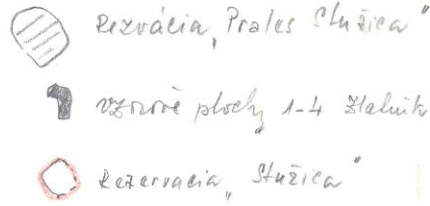 Rezvácia „Prales Stužica"
vzorové plochy 1-4 Zlatník
Rezervacia „Stužica"